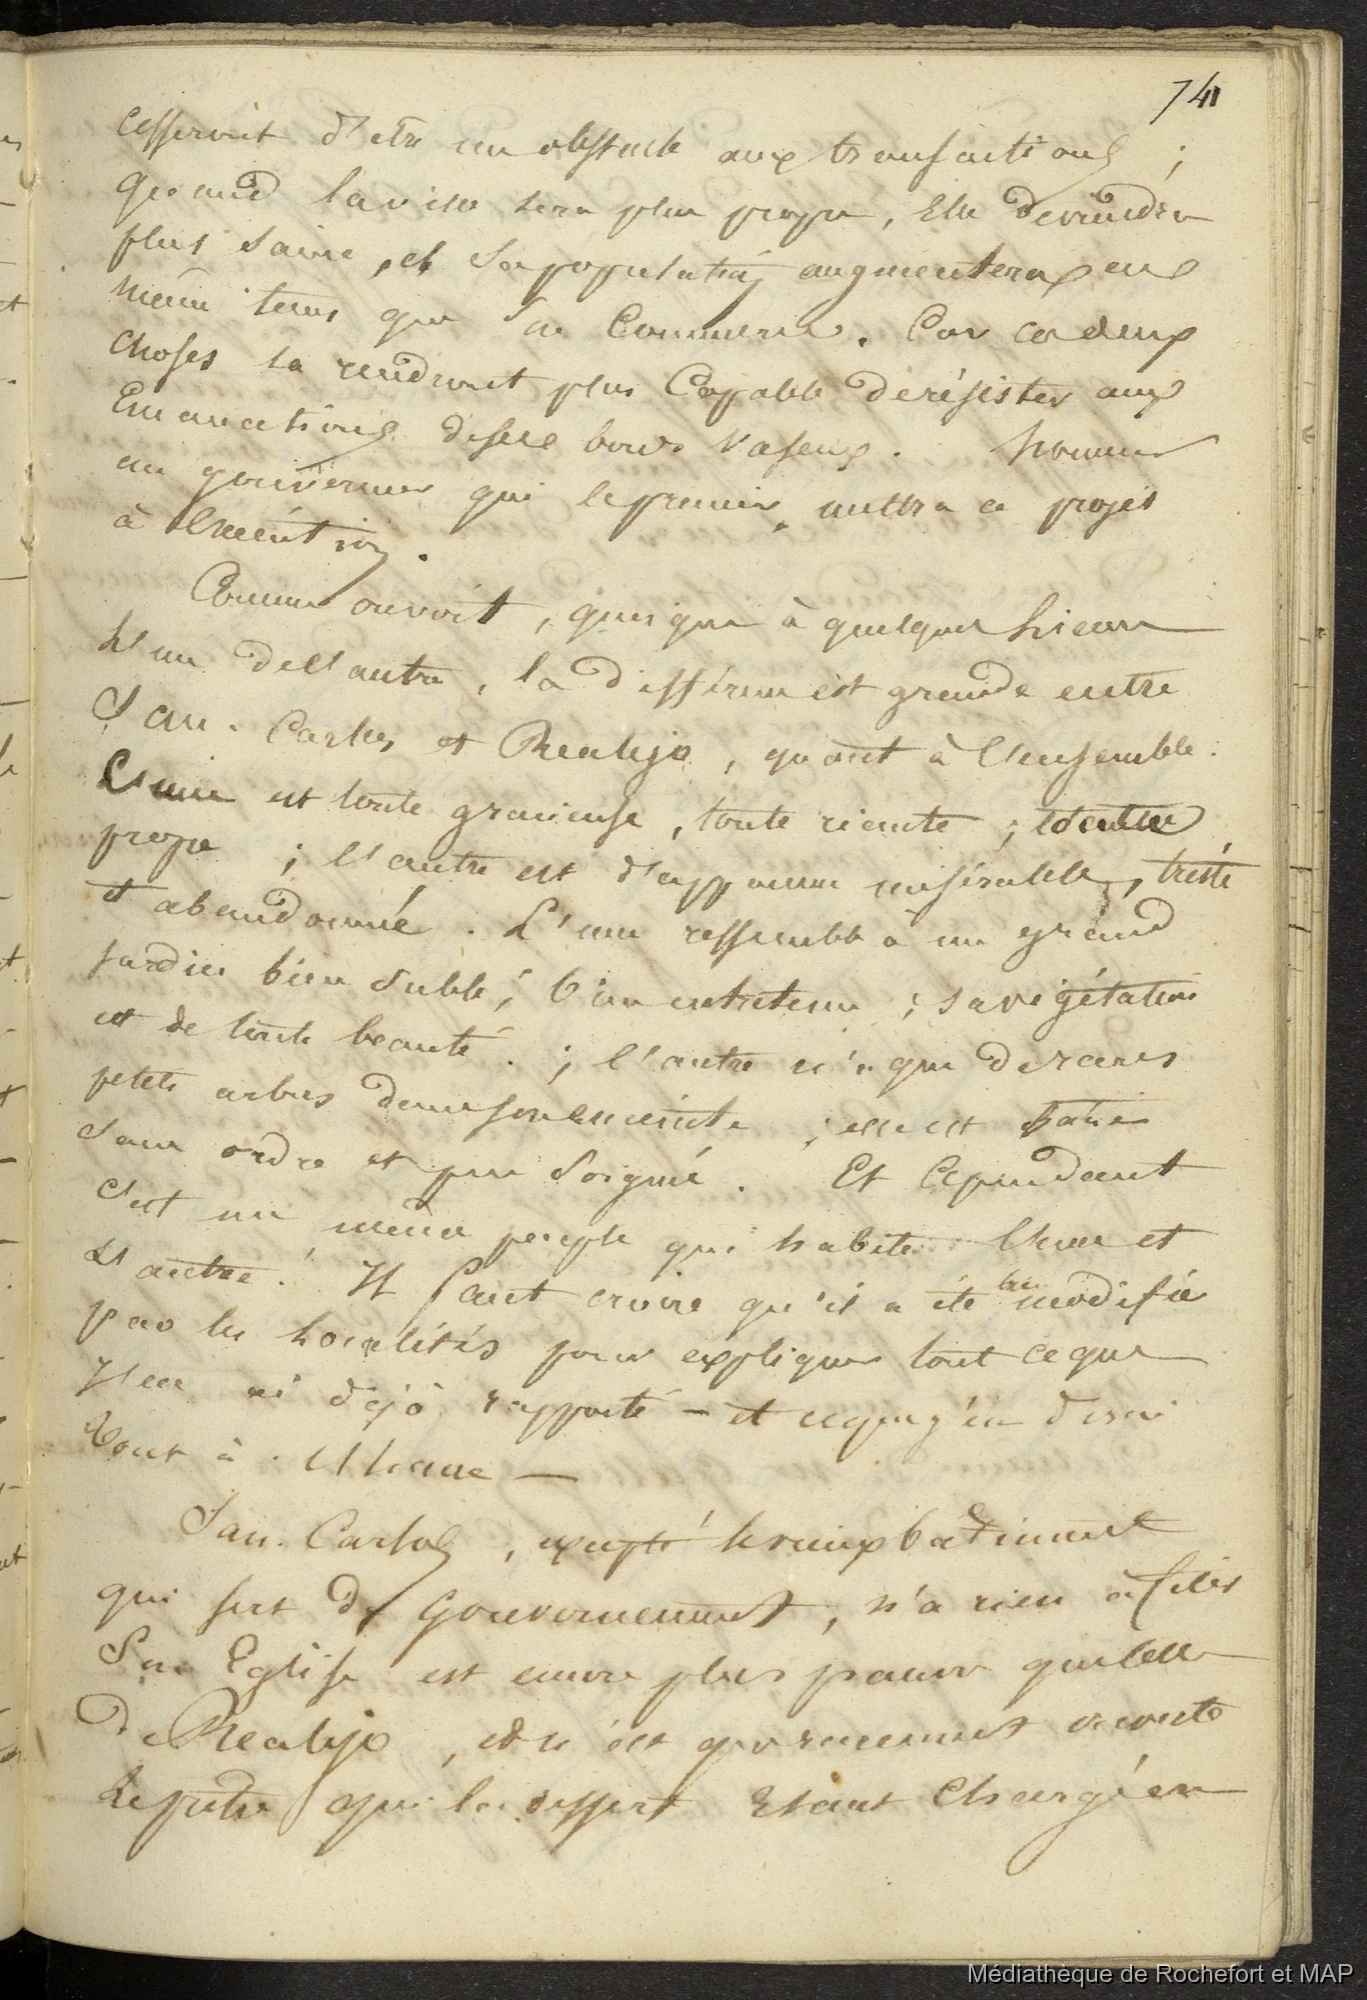 74
cesseroit d'être un obstacle aux transactions ;
quand la ville sera plus propre, Elle deviendra
plus saine, et sa population augmentera en
même tems que son Commerce. Car ces deux
choses la rendront plus Capable de résister aux
Emanations de ses bords Vaseux. honneur
au gouverneur qui le premier, mettra ce projet
à Exécution.
Comme on voit, quoique à quelques lieues
L'un de l'autre, la différence est grande entre
San. Carlos et Realejo, quant à l'ensemble.
L'une est toute gracieuse, toute riante ; toute
propre ; l'autre est d'apparence misérable, triste
et abandonnée. L'une ressemble à un grand
Jardin bien sablé, bien entretenu ; sa végétation
est de toute beauté. ; l'autre n'a que de rares
petits arbres dans son enceinte ; elle est batie
sans ordre et peu soignée. Et Cependant
c'est un même peuple qui habite l'une et
L'autre ! Il faut croire qu'il a été modifié
par les Localités pour expliquer tout ce que
J'en ai déjà rapporté – et ce que j'en dirai
tout à l'heure —
San. Carlos, excepté le vieux bâtiment
qui sert de Gouvernement, n'a rien à citer
Son Eglise est encore plus pauvre que celle
de Realejo, et n'est que rarement ouverte
Le prêtre qui la dessert Etant Chargé en
Médiathèque de Rochefort et MAP